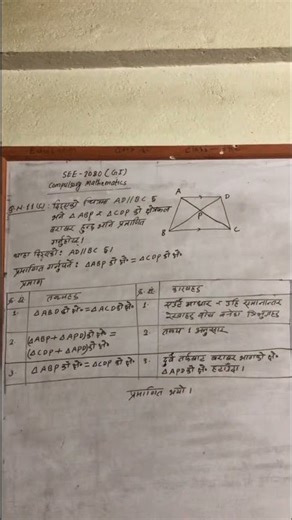 SEE-2080 (GI)
Compulsory Mathematics
Q.N. 11(a) दिइएको चित्रमा AD//BC छ
भने △ABP र △CDP को क्षेत्रफल
बराबर हुन्छ भनि प्रमाणित
गर्नुहोस्।
A D
P
B C
थाहा दिइएको: AD//BC छ।
प्रमाणित गर्नुपर्ने: △ABP को क्षे॰ = △CDP को क्षे॰
प्रमाण
क्र.सं. तथ्यहरू क्र.सं. कारणहरू
1. △ABD को क्षे॰ = △ACD को क्षे॰ 1. एउटै आधार र उही समानान्तर
रेखाहरू बीच बनेका त्रिभुजहरू
2 (△ABP + △APD) को क्षे॰ = 2. तथ्य 1 अनुसार
(△CDP + △APD) को क्षे॰
3 △ABP को क्षे॰ = △CDP को क्षे॰ 3. दुवै तर्फबाट बराबर भागको क्षे॰
△APD को क्षे॰ हटाउँदा।
प्रमाणित भयो।